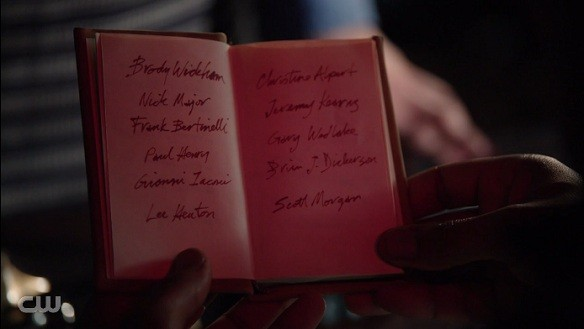 Brody Wickham
Nick Major
Frank Bertinelli
Paul Henry
Gianni
Lee Hexton
Christine Alpert
Jeremy Kearns
Gary
Brian J. Dickerson
Scott Morgan
CW